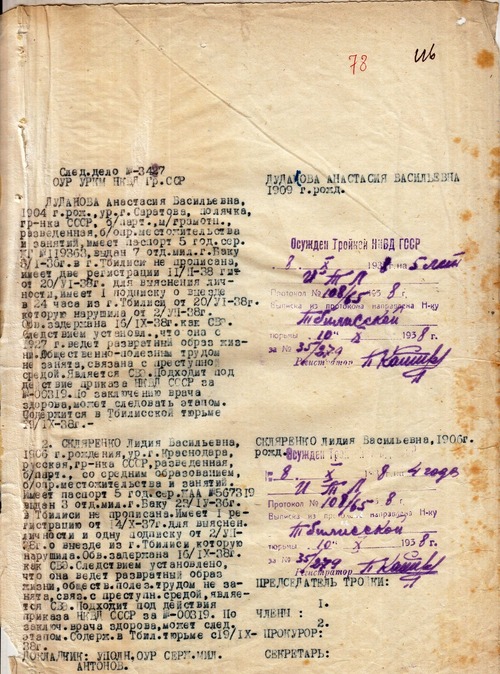 78
След.дело №-3427
ОУР УРКМ НКВД ГР.ССР
ЛУДАНОВА АНАСТАСИЯ ВАСИЛЬЕВНА
1909 г.рожд.
ЛУДАНОВА Анастасия Васильевна,
1904 г.рож., ур.г.Саратова, полячка,
гр-нка СССР, б/парт., м/грамотн.,
разведенная, б/опр.местожительства
и занятий, имеет паспорт 5 год.сер.
№119368, выдан 7 отд.мил.г.Баку
в Тбилиси не прописана, имеет
две регистрации 11/П-38 гит
от 20/УІ-38г. Для выяснения лич-
ности, имеет 1 подписку о выезде
в 24 часа из г.Тбилиси от 20/УІ-38г.
которую нарушила от 2/УП-38г
Обв.задержана 16/ІХ-38г.как СВЭ.
Следствием установл. что она с
1927 г.ведет развратный образ жиз-
ни.Общественно-полезным трудом
не занята, связана с преступн.
средой.Является СВЭ.Подходит под
действие приказа НКВД СССР за
№-00319.По заключению врача
здорова, может следовать этапом.
Содержится в Тбилисской тюрьме
/ІХ-38г.-
Осужден Тройкой НКВД ГССР
8 X 193 на 5 лет
И Т Л
Протокол № 108/65 193 8
Выписка из протокола направлена Н-ку
Тбилисской
тюрьмы 10 X 193 8 г.
за № 35/279
Регистратор
2. СКЛЯРЕНКО Лидия Васильевна,
1906 г.рождения, ур.г.Краснодара,
русская, гр-нка СССР, разведенная,
б/парт., со средним образованием,
б/опр.местожительства и занятий
Имеет паспорт 5 год.сер.МАА №567319
выдан 3 отд.мил.г.Баку 25/ІУ-36г.
в Тбилиси не прописана.Имеет 1 ре-
гистрацию от 14/Х-37г.для выяснен.
личности и одну подписку от 2/УП-
38г.о выезде из г.Тбилиси которую
нарушила.Обв.задержана 16/ІХ-38г.
как СВЭ.Следствием установлено,
что она ведет развратный образ
жизни, обществ.полез.трудом не за-
нята, связ.с преступн.средой, являе-
тся СВЭ.Подходит под действия
приказа НКВД СССР за №-00319. По
заключ.врача здорова, может след.
этапом.Содерж.в Тбил.тюрьме с19/ІХ-
38г.
ДОКЛАДЧИК: УПОЛН.ОУР СЕРЖ.МИЛ.
АНТОНОВ.
СКЛЯРЕНКО ЛИДИЯ ВАСИЛЬЕВНА, 1906г.
рожд.
Осужден Тройкой НКВД ГССР
8 X 8 на 4 года
И Т Л
Протокол № 108/65 8
Выписка из протокола направлена Н-ку
Тбилисской
тюрьмы 10 X 193 8 г.
за № 35/279
Регистратор
ПРЕДСЕДАТЕЛЬ ТРОЙКИ:
1.
ЧЛЕНЫ :
2.
ПРОКУРОР:
СЕКРЕТАРЬ: